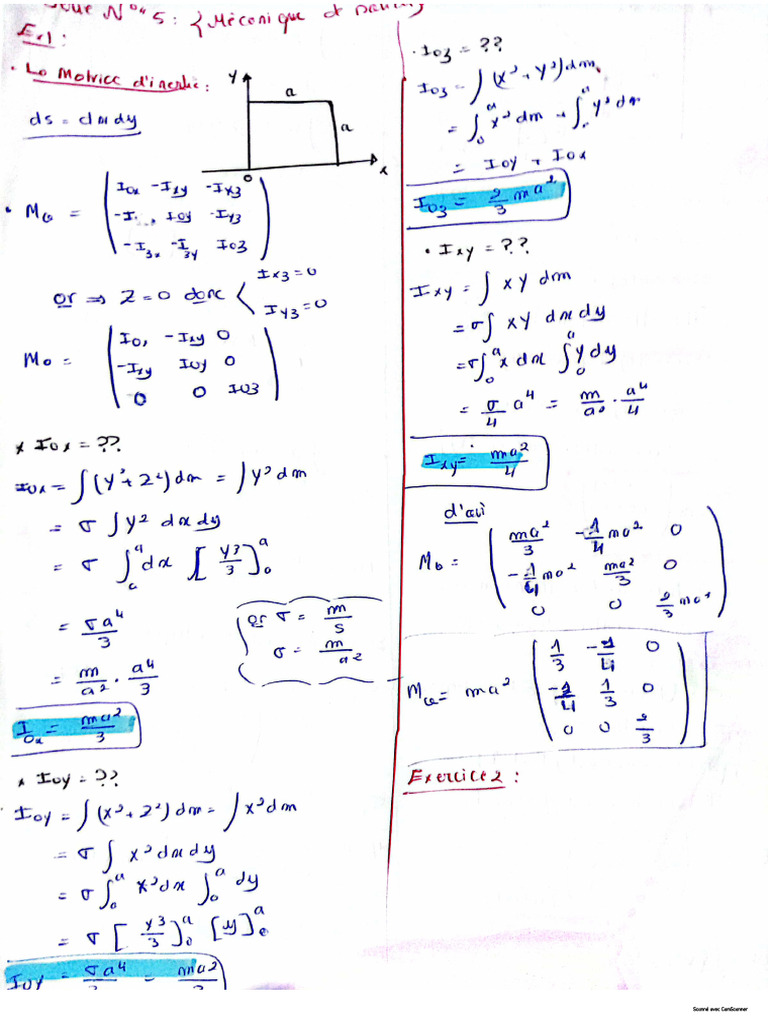 N° 5 : { Mécanique
Ex1 :
• La Matrice d'inertie :
ds = dx dy
y
a
a
0
x
• M_G = ( I_Ox -I_xy -I_x3
-I I_Oy -I_y3
-I_3x -I_3y I_O3 )
or ⇒ Z = 0 donc < I_x3 = 0
I_y3 = 0
M_O = ( I_O, -I_xy 0
-I_xy I_Oy 0
0 0 I_O3 )
* I_Ox = ??
I_Ox = ∫(y² + z²) dm = ∫y² dm
= σ ∫y² dx dy
= σ ∫₀ᵃ dx [y³/3]₀ᵃ
= σa⁴/3
= m/a² . a⁴/3
( or σ = m/s
σ = m/a²
I_Ox = ma²/3
* I_Oy = ??
I_Oy = ∫(x² + z²) dm = ∫x² dm
= σ ∫ x² dx dy
= σ ∫₀ᵃ x² dx ∫₀ᵃ dy
= σ [y³/3]₀ᵃ [y]₀ᵃ
I_Oy = σa⁴/3 = ma²/3
• I_O3 = ??
I_O3 = ∫(x² + y²) dm
= ∫₀ᵃ x² dm + ∫₀ᵃ y² dm
= I_Oy + I_Ox
I_O3 = 2/3 ma²
• I_xy = ??
I_xy = ∫ xy dm
= σ∫ xy dx dy
= σ∫₀ᵃ x dx ∫₀ᵃ y dy
= σ/4 a⁴ = m/a² . a⁴/4
I_xy = ma²/4
d'où
M_O = ( ma²/3 -1/4 ma² 0
-1/4 ma² ma²/3 0
0 0 2/3 ma² )
M_G = ma² ( 1/3 -1/4 0
-1/4 1/3 0
0 0 2/3 )
Exercice 2 :
Scanné avec CamScanner